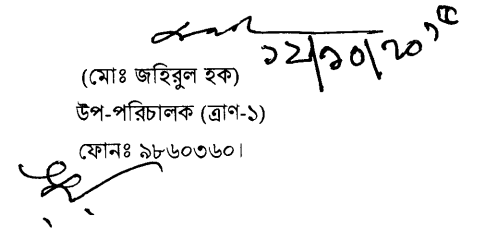 ১২/১০/২০১৫
(মোঃ জহিরুল হক)
উপ-পরিচালক (ত্রাণ-১)
ফোনঃ ৯৮৬০৩৬০।